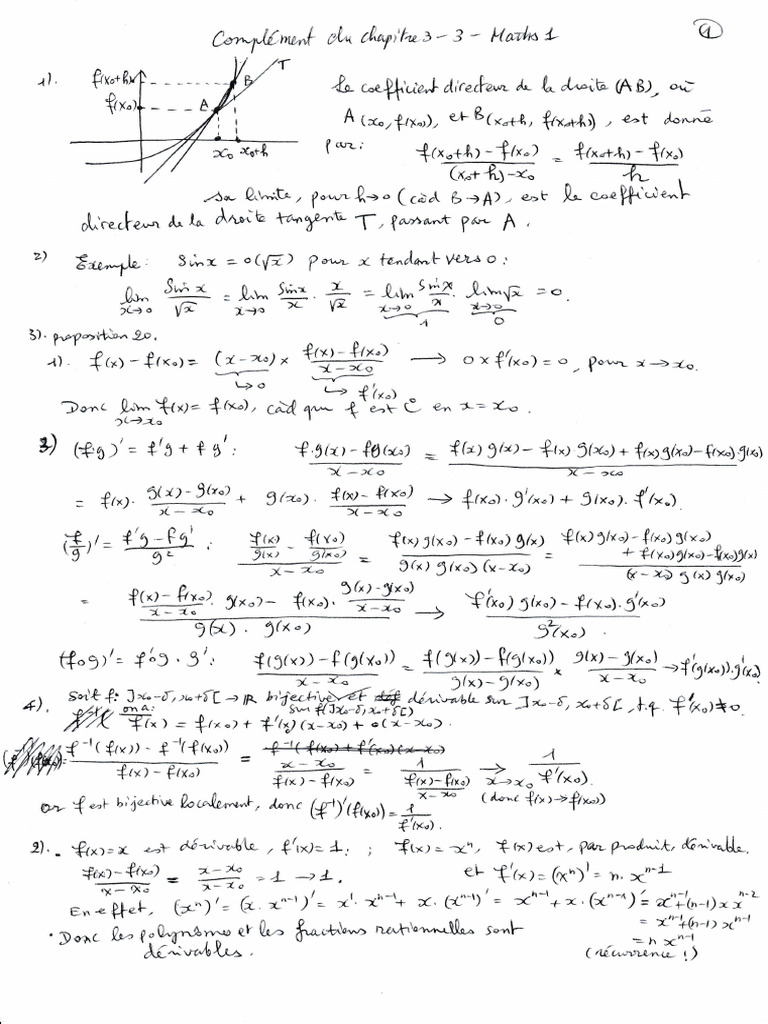 Complément du chapitre 3-3 - Maths 1
1
1). f(x0+h) f(x0) A B T x0 x0+h
Le coefficient directeur de la droite (AB), où
A(x0, f(x0)), et B(x0+h, f(x0+h)), est donné
par: (f(x0+h) - f(x0))/((x0+h)-x0) = (f(x0+h) - f(x0))/h
sa limite, pour h→0 (càd B→A), est le coefficient
directeur de la droite tangente T, passant par A.
2) Exemple: Sinx = o(√x) pour x tendant vers 0:
lim x→0 Sinx/√x = lim x→0 Sinx/x · x/√x = lim x→0 Sinx/x · lim x→0 √x = 0.
1 0
3). proposition 20.
1). f(x) - f(x0) = (x-x0) × (f(x) - f(x0))/(x-x0) → 0 × f'(x0) = 0, pour x→x0.
↳ 0 ↳ f'(x0)
Donc lim x→x0 f(x) = f(x0), càd que f est C en x = x0.
3) (f·g)' = f'g + f g': (f·g(x) - fg(x0))/(x-x0) = (f(x) g(x) - f(x) g(x0) + f(x) g(x0) - f(x0) g(x0))/(x-x0)
= f(x) · (g(x) - g(x0))/(x-x0) + g(x0) · (f(x) - f(x0))/(x-x0) → f(x0) · g'(x0) + g(x0) · f'(x0).
(f/g)' = (f'g - fg')/g² : (f(x)/g(x) - f(x0)/g(x0))/(x-x0) = (f(x) g(x0) - f(x0) g(x))/(g(x) g(x0) (x-x0)) = (f(x) g(x0) - f(x0) g(x0) + f(x0) g(x0) - f(x0) g(x))/((x-x0) g(x) g(x0))
= ((f(x) - f(x0))/(x-x0) · g(x0) - f(x0) · (g(x) - g(x0))/(x-x0))/(g(x) · g(x0)) → (f'(x0) g(x0) - f(x0) · g'(x0))/g²(x0).
(f∘g)' = f'∘g · g': (f(g(x)) - f(g(x0)))/(x-x0) = (f(g(x)) - f(g(x0)))/(g(x) - g(x0)) × (g(x) - g(x0))/(x-x0) → f'(g(x0)) · g'(x0).
4). Soit f: ]x0-δ, x0+δ[ → IR bijective et dérivable sur ]x0-δ, x0+δ[, t.q. f'(x0) ≠ 0.
sur f(]x0-δ, x0+δ[)
on a: f(x) = f(x0) + f'(x)(x-x0) + o(x-x0).
(f⁻¹(f(x)) - f⁻¹(f(x0)))/(f(x) - f(x0)) = (x-x0)/(f(x) - f(x0)) = 1/((f(x) - f(x0))/(x-x0)) → x→x0 1/f'(x0).
(donc f(x) → f(x0))
or f est bijective localement, donc (f⁻¹)'(f(x0)) = 1/f'(x0).
2). · f(x) = x est dérivable, f'(x) = 1. ; f(x) = xⁿ, f(x) est, par produit, dérivable.
(f(x) - f(x0))/(x-x0) = (x-x0)/(x-x0) = 1 → 1. et f'(x) = (xⁿ)' = n · xⁿ⁻¹
En effet, (xⁿ)' = (x · xⁿ⁻¹)' = x' · xⁿ⁻¹ + x · (xⁿ⁻¹)' = xⁿ⁻¹ + x · (xⁿ⁻¹)' = xⁿ⁻¹ + (n-1) x xⁿ⁻²
= xⁿ⁻¹ + (n-1) xⁿ⁻¹
= n xⁿ⁻¹
· Donc les polynsmo et les fractions rationnelles sont
dérivables. (récurrence !)